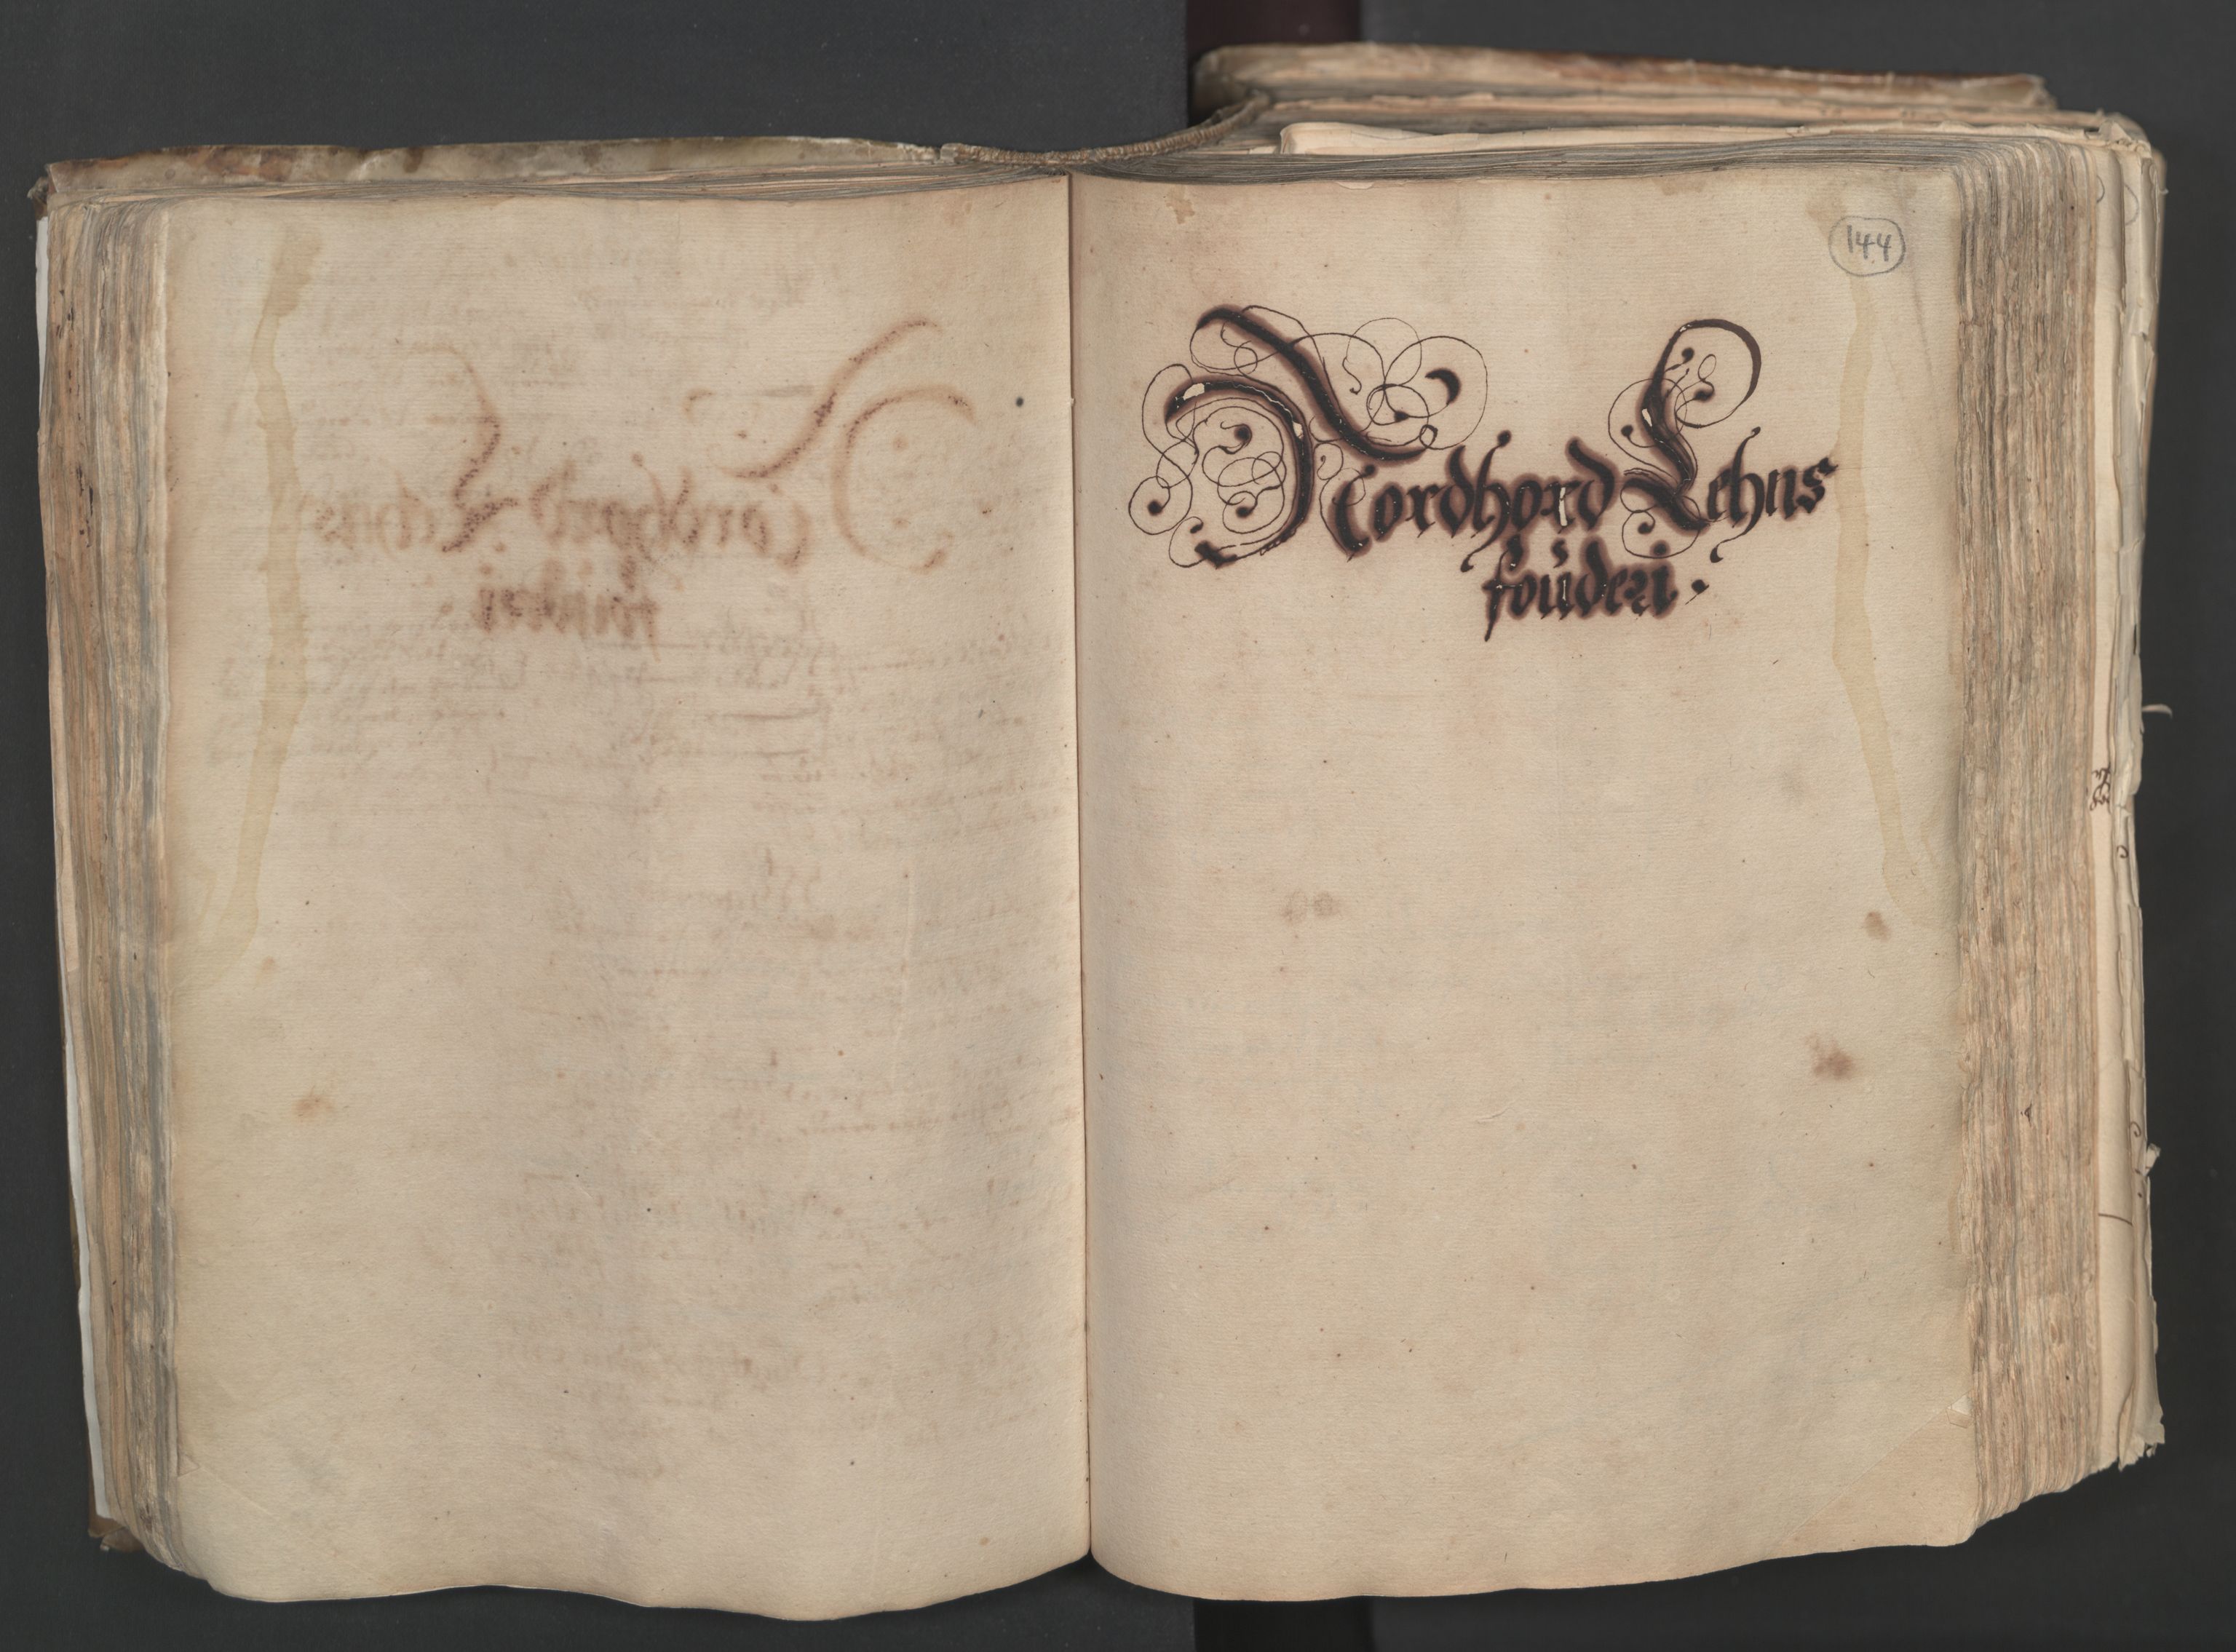 144
Nordhord Lehns
fouderi.